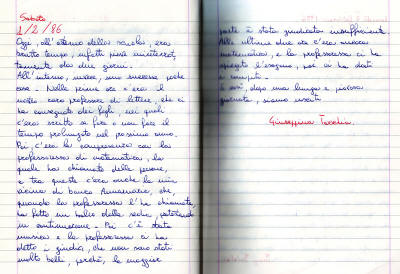 Sabato
1/2/86
Oggi, all'esterno della scuola, era
brutto tempo, infatti piove ininterrot,
tamente da due giorni.
All'interno, invece, sono successe poche
cose. Nella prima ora c'era il
nostro caro professore di lettere, che ci
ha consegnato dei fogli, nei quali
c'era scritto se fare o non fare il
tempo prolungato nel prossimo anno.
Poi, c'era la compresenza con la
professoressa di matematica, la
quale ha chiamato delle persone,
e tra queste c'era anche la mia
vicina di banco Annamaria, che,
quando la professoressa l'ha chiamata,
ha fatto un balzo dalla sedia,
in continuazione. Poi c'è stata
musica e la professoressa ci ha
detto i giudizi, che non sono stati
molto belli, perché, la maggior
parte è stata giudicata insufficiente.
Alle ultime due ore c'era ancora
matematica, e la professoressa ci ha
spiegato l'esagono, poi ci ha dato
il compito.
E così, dopo una lunga e piovosa
giornata, siamo usciti.
Giuseppina